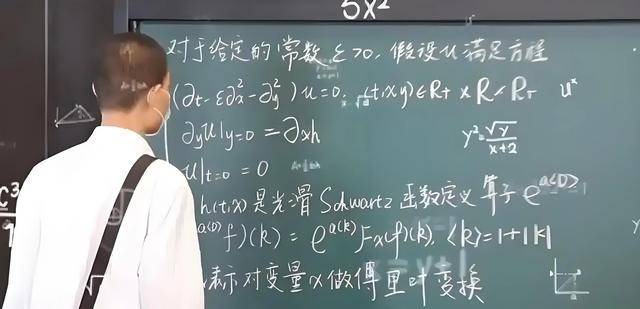 5x²
对于给定的常数 ε>0, 假设 u 满足方程
(∂t-ε∂x²-∂y²)u=0, (t,x,y)∈R+×R×R+ uⁿ
∂yu|y=0=∂xh
y²=√y/x+2
u|t=0=0
h(t,x)是光滑 Schwartz 函数定义 算子 e^a(D)
a(D) f)(k)=e^a(k)Fx(f)(k), ⟨k⟩=1+|k|
表示对变量 x 做傅里叶变换